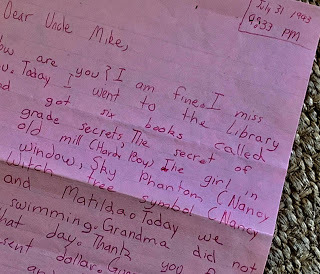 July 31 1993
9:33 PM
Dear Uncle Mike,
ow are you? I am fine. I miss
u. Today I went to the Library
nd got six books called
grade secrets, The secret of
old mill (Hardy Boy) The girl in
window, Sky Phantom (Nancy
Witch tree symbol (Nancy
and Matilda. Today we did not
swimming. Grandma did not
hat day. Thank you f
sent dollar.